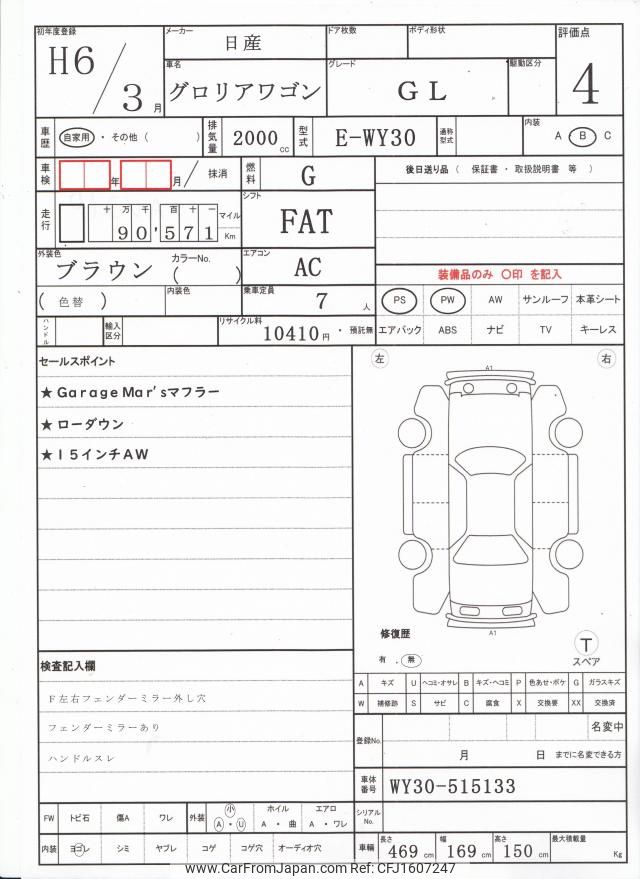 初年度登録 メーカー ドア枚数 ボディ形状 評価点
H6/3月 日産
車名 グレード 駆動区分
グロリアワゴン GL 4
車歴 自家用・その他( ) 排気量 2000cc 型式 E-WY30 通称型式 内装 A B C
車検 年 月/ 抹消 燃料 G 後日送り品( 保証書・取扱説明書 等 )
走行 十万千百十一 マイル Km シフト
90,571 FAT
外装色 カラーNo. エアコン
ブラウン ( ) AC 装備品のみ ○印 を記入
( 色替 ) 内装色 乗車定員 7 人 PS PW AW サンルーフ 本革シート
ハンドル 輸入区分 リサイクル料 10410円・預託無 エアバック ABS ナビ TV キーレス
セールスポイント 左 右
★Garage Mar'sマフラー A1
★ローダウン
★15インチAW
修復歴 A1
有 . 無 T スペア
検査記入欄
A キズ U ヘコミ・オサレ B キズ・ヘコミ P 色あせ・ボケ G ガラスキズ
W 補修跡 S サビ C 腐食 X 交換要 XX 交換済
F左右フェンダーミラー外し穴
フェンダーミラーあり
ハンドルスレ
登録No. 名変中
月 日 までに名変できる方
車体番号 WY30-515133
FW トビ石 傷A ワレ 外装 小 A・U ホイル A・曲 エアロ A・ワレ シリアルNo.
内装 ヨゴレ シミ ヤブレ コゲ コゲ穴 オーディオ穴 車輛 長さ 469cm 幅 169cm 高さ 150cm 最大積載量 Kg
www.CarFromJapan.com CFJ1607247